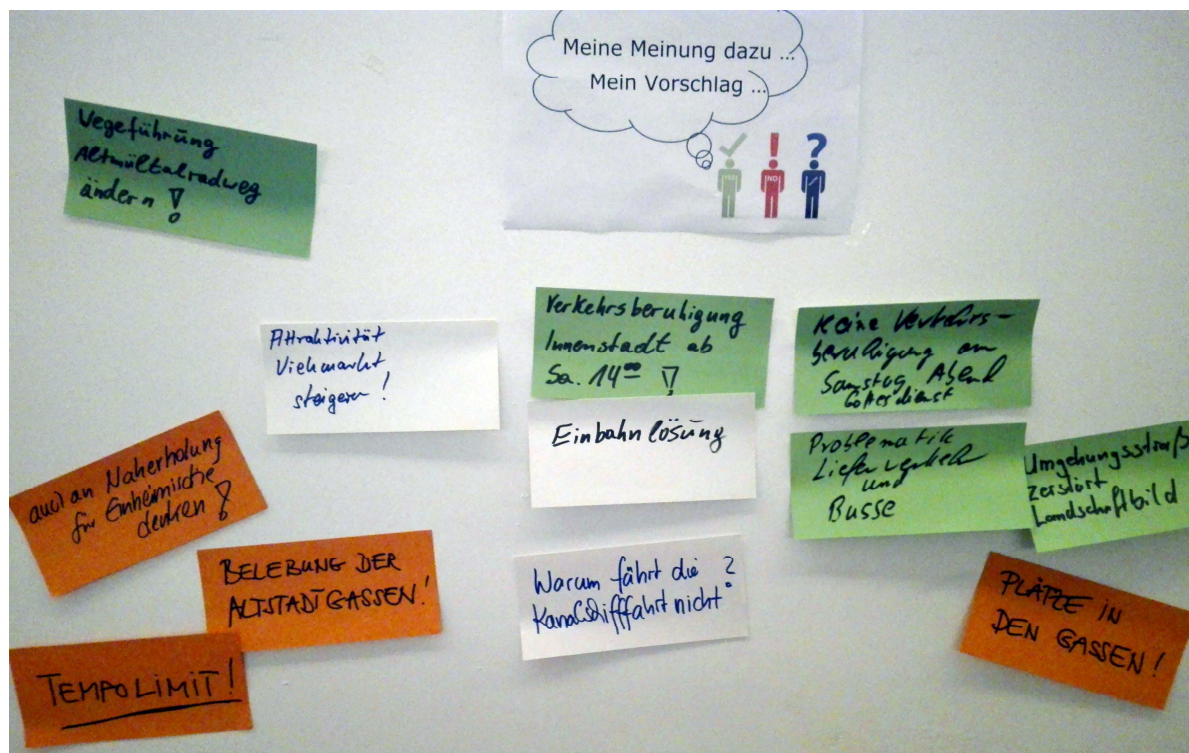 Meine Meinung dazu ...
Mein Vorschlag ...
YES
NO
?
Wegeführung
Altmühltalradweg
ändern !
Attraktivität
Viehmarkt
steigern !
Verkehrsberuhigung
Innenstadt ab
Sa. 14⁰⁰ !
Keine Verkehrs-
beruhigung am
Samstag Abend
Gottesdienst
Einbahnlösung
Problematik
Lieferverkehr
und
Busse
Umgehungsstraße
zerstört
Landschaftbild
auch an Naherholung
für Einheimische
denken !
BELEBUNG DER
ALTSTADTGASSEN!
Warum fährt die
Kanalschifffahrt nicht?
PLÄTZE IN
DEN GASSEN!
TEMPOLIMIT!